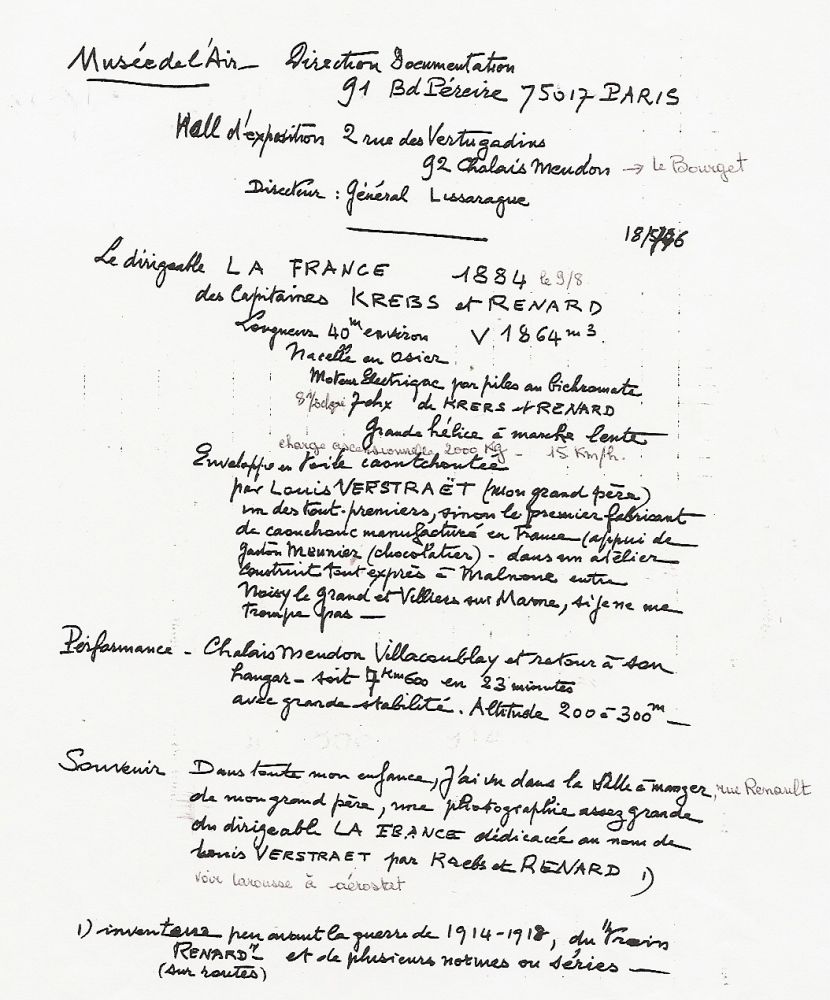 Musée de l'Air — Direction Documentation
91 Bd Péreire 75017 PARIS
Hall d'exposition 2 rue des Vertugadins
92 Chalais Meudon → le Bourget
Directeur : Général Lissarague
18/5/76
Le dirigeable LA FRANCE 1884 le 9/8
des Capitaines KREBS et RENARD
Longueur 40m environ V 1864 m3.
Nacelle en osier
Moteur Electrique par piles au bichromate
7 chx de KRERS et RENARD
Grande hélice à marche lente
charge ascensionnelle 2000 Kg - 15 Kmph.
Enveloppe en toile caoutchoutée
par Louis VERSTRAËT (mon grand père)
un des tout-premiers, sinon le premier fabricant
de caouchouc manufacturé en France (appui de
Gaston Meunier (chocolatier) - dans un atelier
construit tout exprès à Malnoue entre
Noisy le grand et Villiers sur Marne, si je ne me
trompe pas —
Performance - Chalais Meudon Villacoublay et retour à son
hangar - soit 7Km600 en 23 minutes
avec grande stabilité. Altitude 200 à 300m —
Souvenir Dans toute mon enfance, j'ai vu dans la salle à manger, rue Renault
de mon grand père, une photographie assez grande
du dirigeable LA FRANCE dédicacée au nom de
Louis VERSTRAET par Krebs et RENARD 1)
voir larousse à aérostat
1) inventeur peu avant la guerre de 1914-1918, du "Train
RENARD" et de plusieurs normes ou séries —
(sur routes)